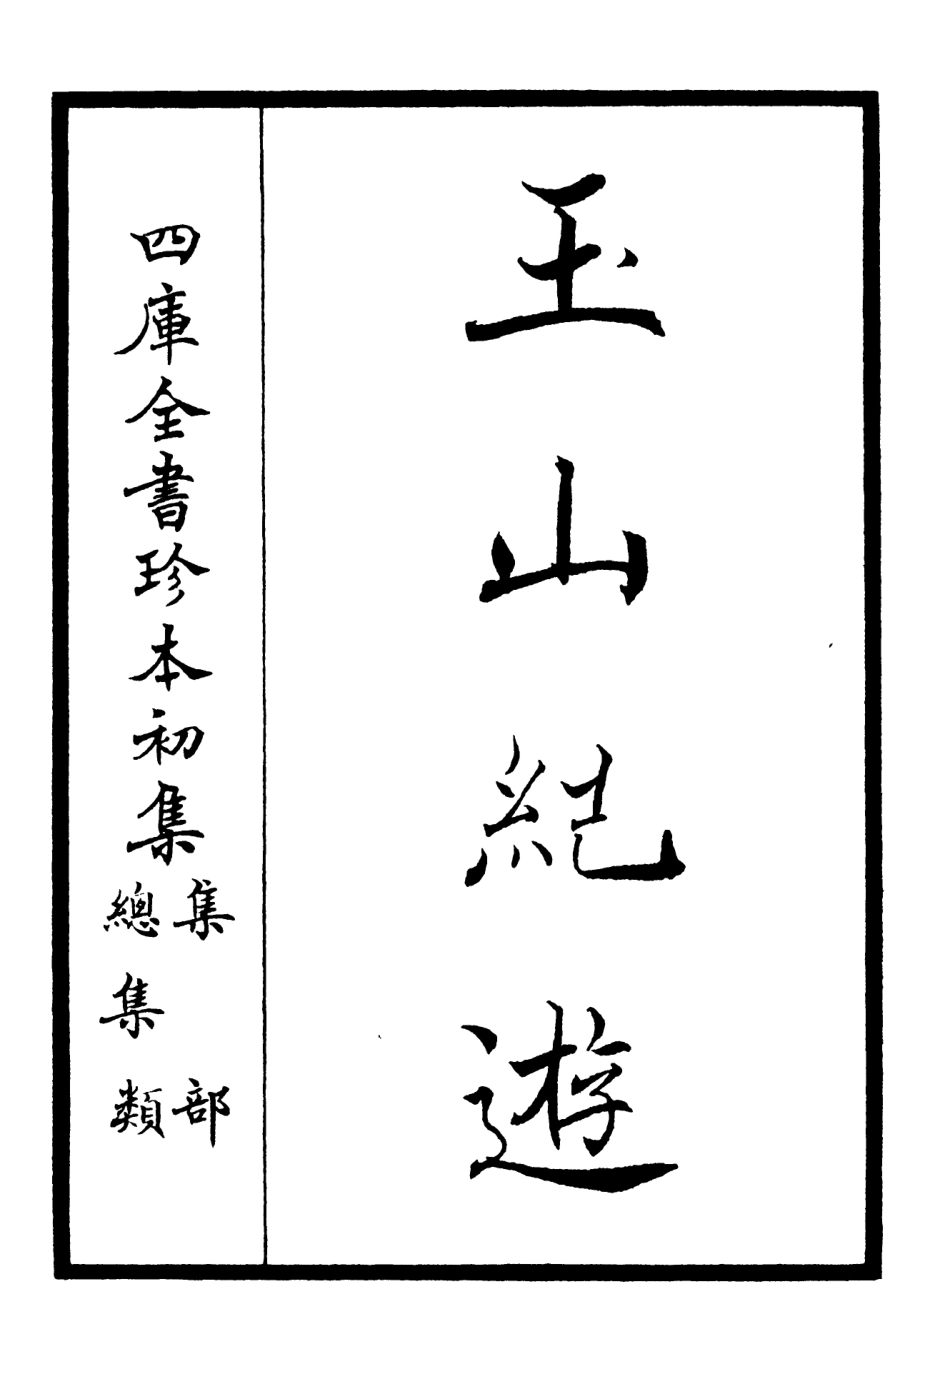 玉山紀遊
四庫全書珍本初集
集部
總集類